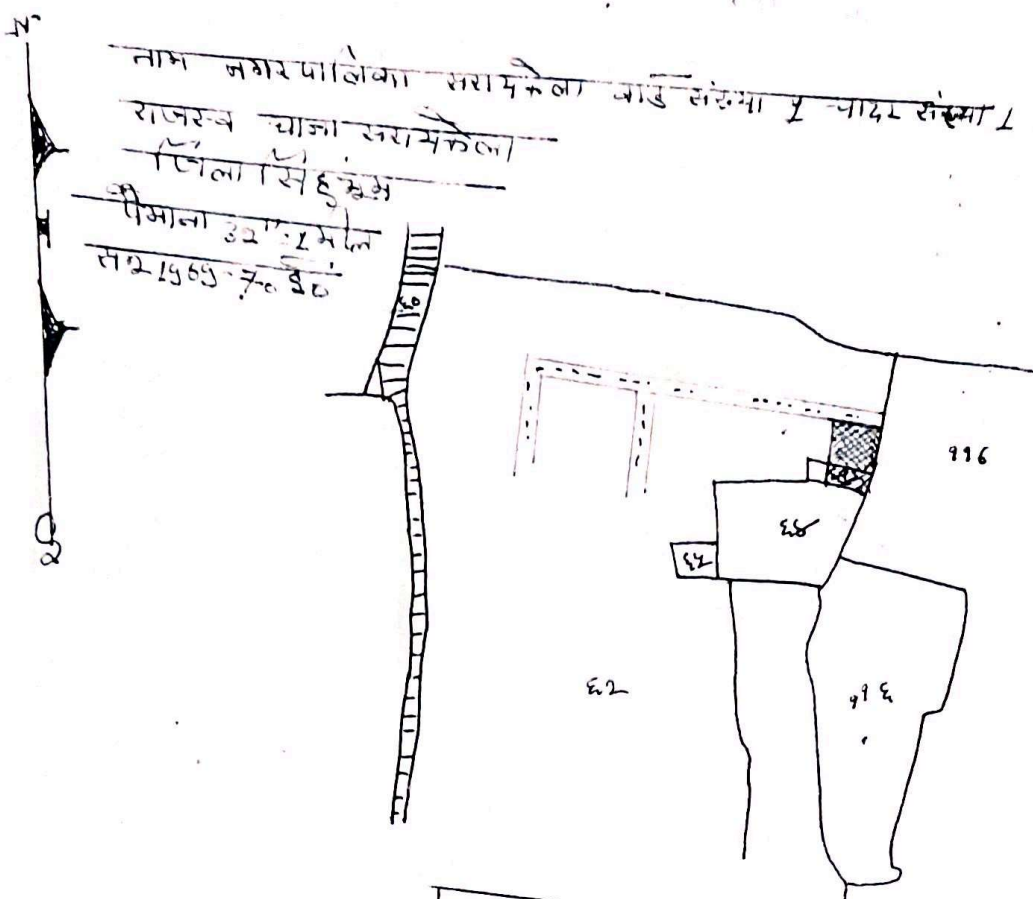 N
नाम नगरपालिका सरायकेला वार्ड संख्या 1 चादर संख्या 1
राजस्व थाना सरायकेला
जिला सिंहभूम
पैमाना 32"=1 मील
सन 1969-70 ई०
६०
११७
६४
६३
६२
११६